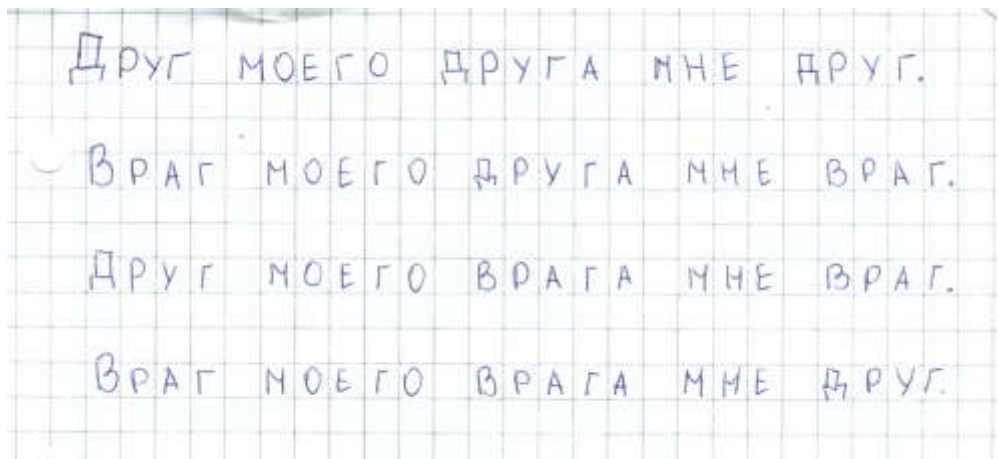 Друг моего друга мне друг.
Враг моего друга мне враг.
Друг моего врага мне враг.
Враг моего врага мне друг.